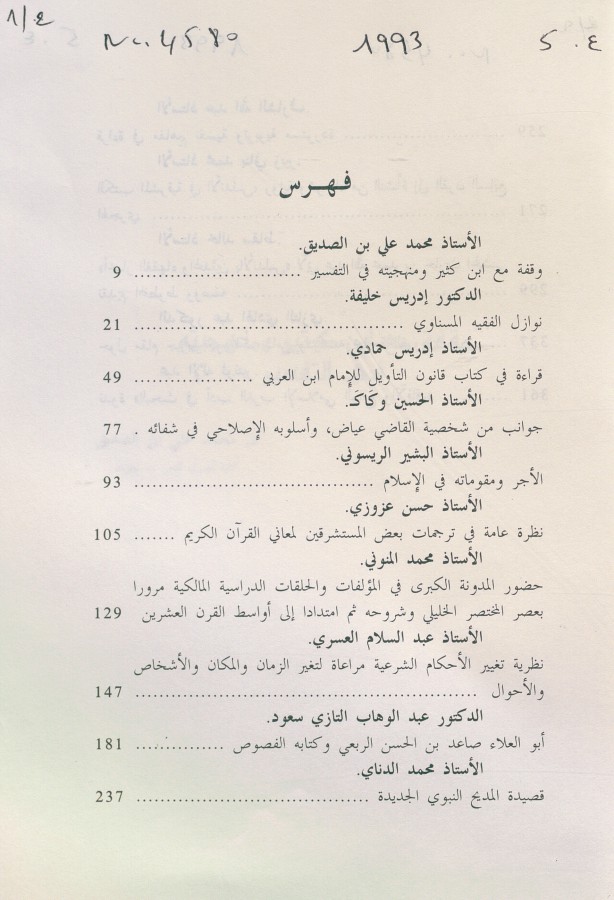 ٤/١
No. 4580 1993 ٤.5
فهرس
الأستاذ محمد علي بن الصديق.
وقفة مع ابن كثير ومنهجيته في التفسير ................... 9
الدكتور إدريس خليفة.
نوازل الفقيه المسناوي ................................. 21
الأستاذ إدريس حمادي.
قراءة في كتاب قانون التأويل للإمام ابن العربي ............ 49
الأستاذ الحسين وكاك.
جوانب من شخصية القاضي عياض، وأسلوبه الإصلاحي في شفائه . 77
الأستاذ البشير الريسوني.
الأجر ومقوماته في الإسلام ............................. 93
الأستاذ حسن عزوزي.
نظرة عامة في ترجمات بعض المستشرقين لمعاني القرآن الكريم ....... 105
الأستاذ محمد المنوني.
حضور المدونة الكبرى في المؤلفات والحلقات الدراسية المالكية مرورا
بعصر المختصر الخليلي وشروحه ثم امتدادا إلى أواسط القرن العشرين 129
الأستاذ عبد السلام العسري.
نظرية تغيير الأحكام الشرعية مراعاة لتغير الزمان والمكان والأشخاص
والأحوال .......................................... 147
الدكتور عبد الوهاب التازي سعود.
أبو العلاء صاعد بن الحسن الربعي وكتابه الفصوص .............. 181
الأستاذ محمد الدناي.
قصيدة المديح النبوي الجديدة ............................ 237